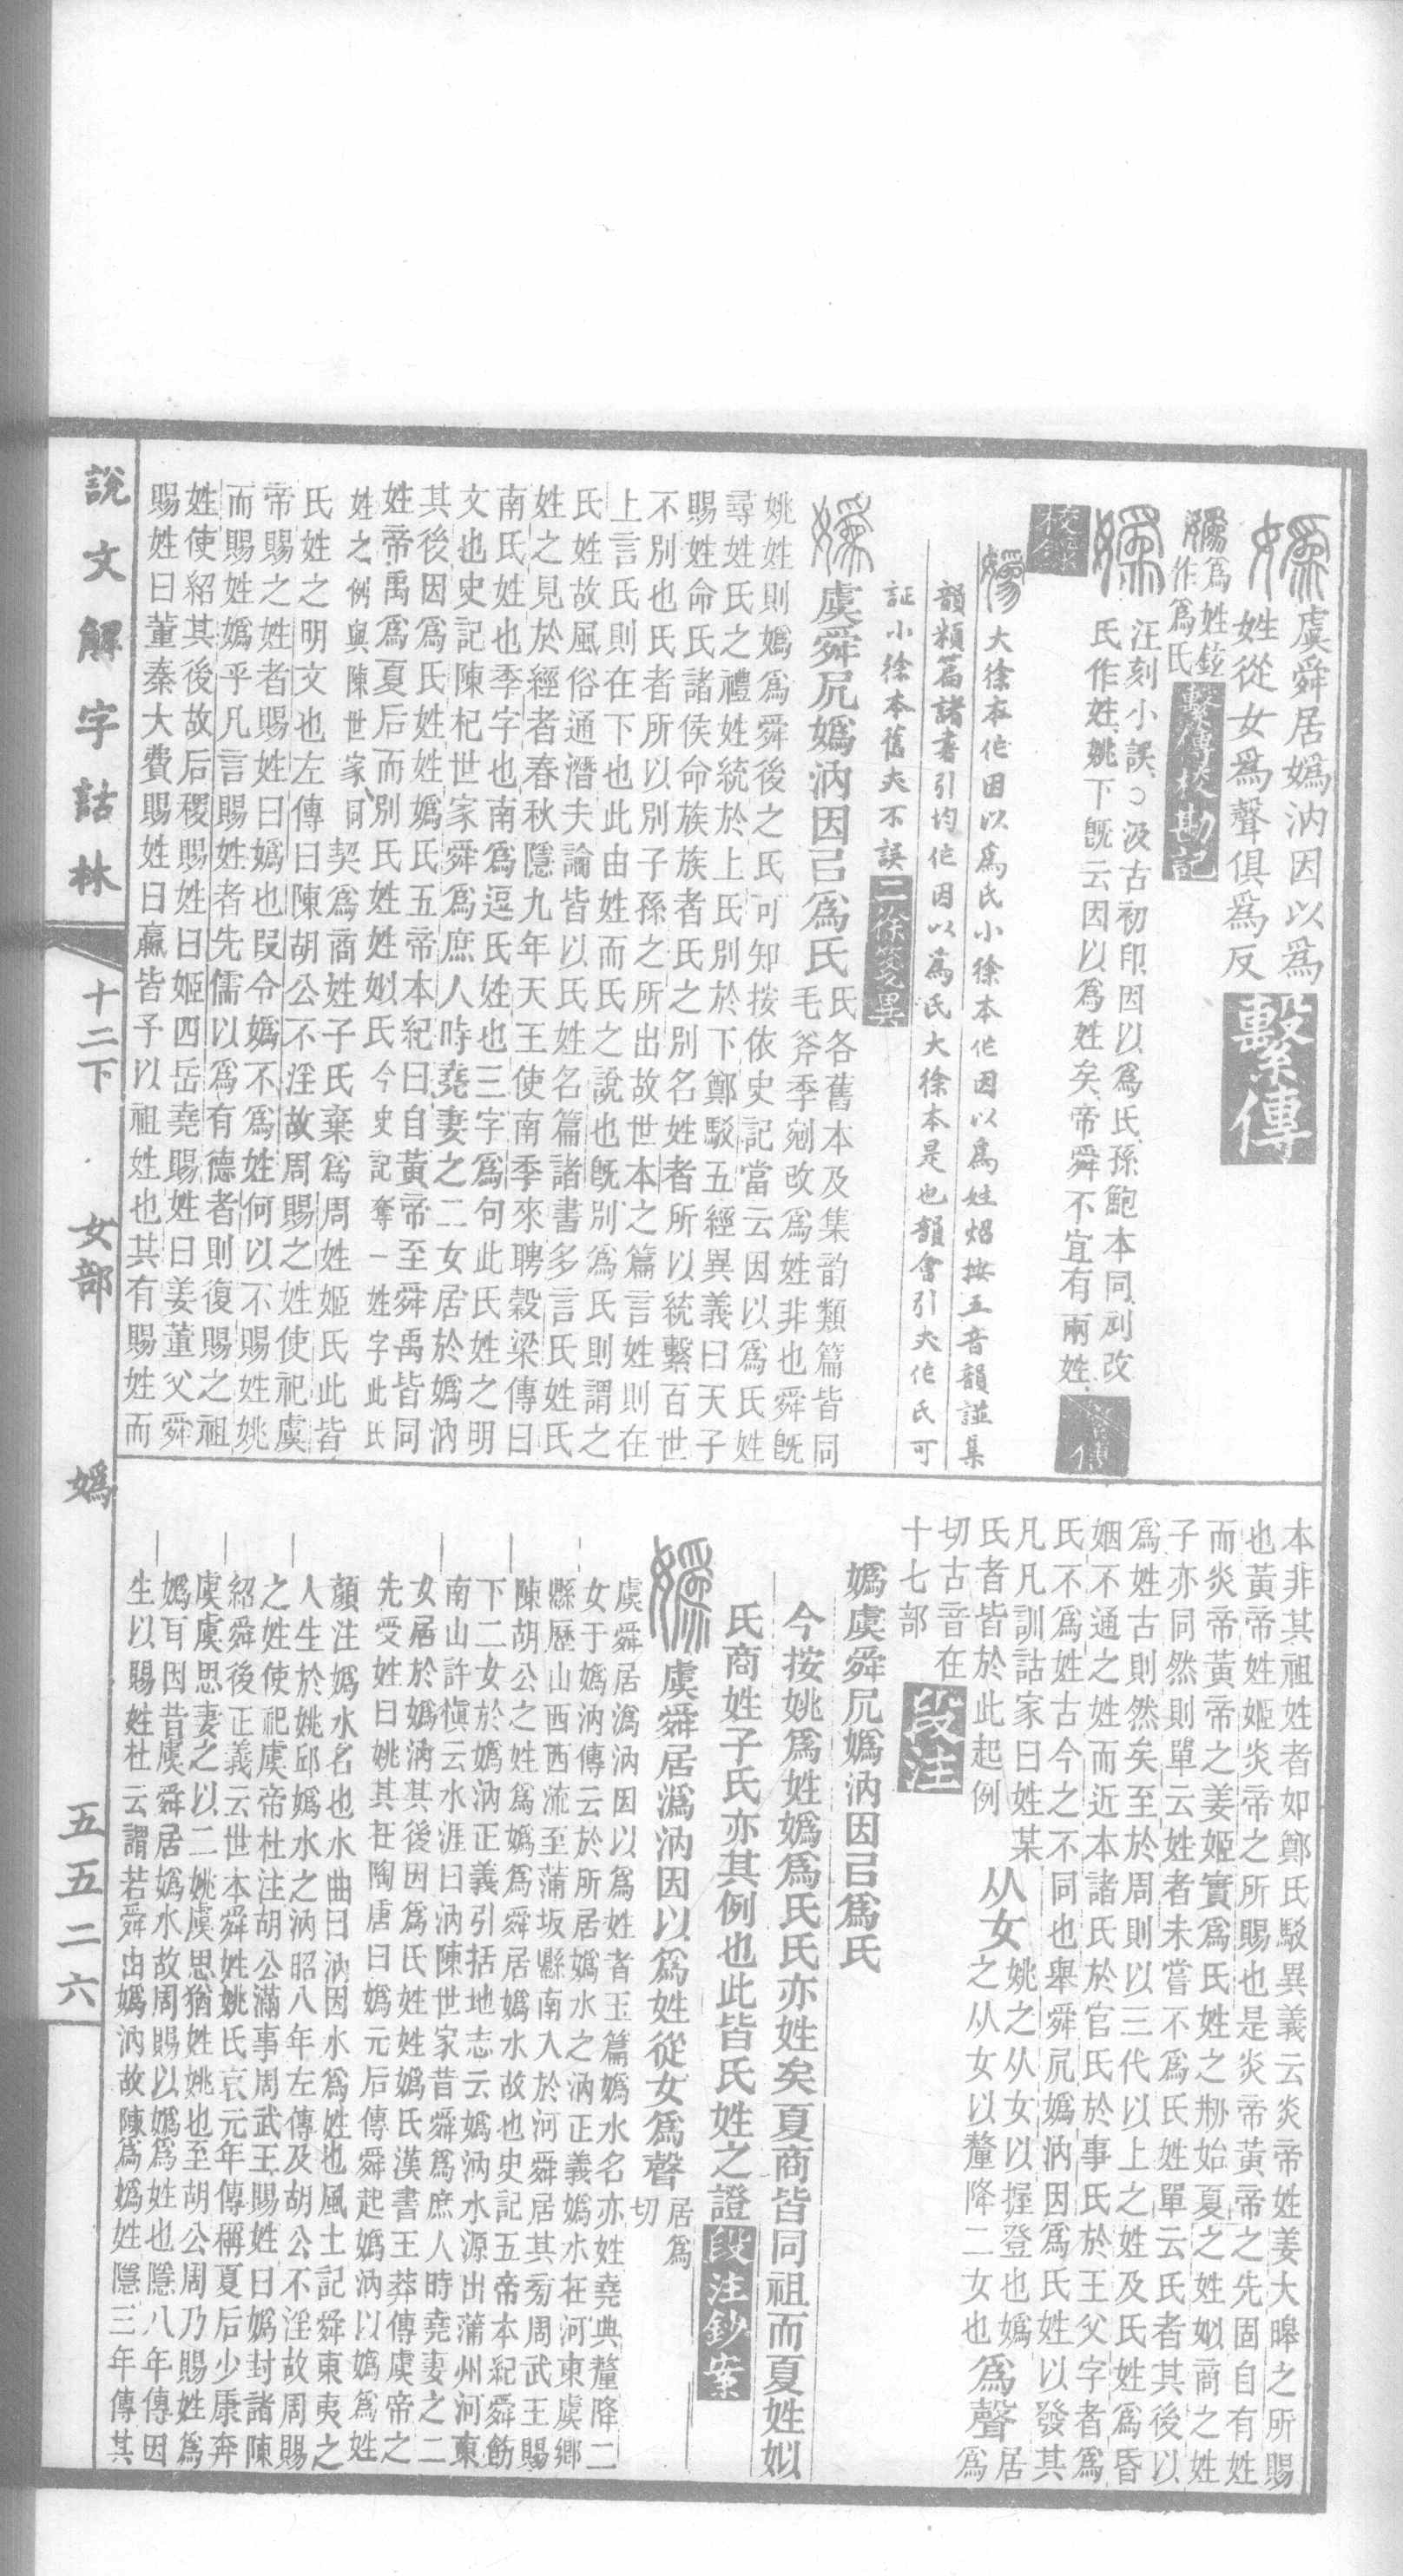 嬀虞舜居嬀汭因以爲
姓從女爲聲俱爲反 繫傳
嬀爲姓鉉
作爲氏 繫傳校勘記
嬀 汪刻小誤、○汲古初印因以爲氏孫鮑本同剜改
氏作姓姚下旣云因以爲姓矣帝舜不宜有兩姓、
校錄
嬀大徐本作因以爲氏小徐本作因以爲姓炤按五音韻譜集
韻類篇諸書引均作因以爲氏大徐本是也韻會引大作氏可
証小徐本舊夫不誤 二徐箋異
嬀虞舜凥嬀汭因㠯爲氏 氏各舊本及集韵類篇皆同
毛斧季剜改爲姓非也舜旣
姚姓則嬀爲舜後之氏可知按依史記當云因以爲氏姓
尋姓氏之禮姓統於上氏別於下鄭駁五經異義曰天子
賜姓命氏諸侯命族族者氏之別名姓者所以統繫百世
不別也氏者所以別子孫之所出故世本之篇言姓則在
上言氏則在下也此由姓而氏之說也旣別爲氏則謂之
氏姓故風俗通潛夫論皆以氏姓名篇諸書多言氏姓氏
姓之見於經者春秋隱九年天王使南季來聘穀梁傳曰
南氏姓也季字也南爲逗氏姓也三字爲句此氏姓之明
文也史記陳杞世家舜爲庶人時堯妻之二女居於嬀汭
其後因爲氏姓姓嬀氏五帝本紀曰自黃帝至舜禹皆同
姓帝禹爲夏后而別氏姓姓姒氏今史記奪一姓字此氏
姓之例與陳世家同契爲商姓子氏棄爲周姓姬氏此皆
氏姓之明文也左傳曰陳胡公不淫故周賜之姓使祀虞
帝賜之姓者賜姓曰嬀也叚令嬀不爲姓何以不賜姓姚
而賜姓嬀乎凡言賜姓者先儒以爲有德者則復賜之祖
姓使紹其後故后稷賜姓曰姬四岳堯賜姓曰姜董父舜
賜姓曰董秦大費賜姓曰嬴皆予以祖姓也其有賜姓而
本非其祖姓者如鄭氏駁異義云炎帝姓姜大皞之所賜
也黃帝姓姬炎帝之所賜也是炎帝黃帝之先固自有姓
而炎帝黃帝之姜姬實爲氏姓之刱始夏之姓姒商之姓
子亦同然則單云姓者未嘗不爲氏姓單云氏者其後以
爲姓古則然矣至於周則以三代以上之姓及氏姓爲昏
姻不通之姓而近本諸氏於官氏於事氏於王父字者爲
氏不爲姓古今之不同也舉舜凥嬀汭因爲氏姓以發其
凡凡訓詁家曰姓某
氏者皆於此起例 从女 姚之从女以握登也嬀
之从女以釐降二女也 爲聲 居爲
切古音在
十七部 段注
嬀虞舜凥嬀汭因㠯爲氏
今按姚爲姓嬀爲氏氏亦姓矣夏商皆同祖而夏姓姒
氏商姓子氏亦其例也此皆氏姓之證 段注鈔案
嬀虞舜居潙汭因以爲姓從女爲聲 居爲
切
虞舜居潙汭因以爲姓者玉篇嬀水名亦姓堯典釐降二
女于嬀汭傳云於所居嬀水之汭正義嬀水在河東虞鄉
縣歷山西西流至蒲坂縣南入於河舜居其㫄周武王賜
陳胡公之姓爲嬀爲舜居嬀水故也史記五帝本紀舜飭
下二女於嬀汭正義引括地志云嬀汭水源出蒲州河東
南山許愼云水涯曰汭陳世家昔舜爲庶人時堯妻之二
女居於嬀汭其後因爲氏姓姓嬀氏漢書王莽傳虞帝之
先受姓曰姚其在陶唐曰嬀元后傳舜起嬀汭以嬀爲姓
顏注嬀水名也水曲曰汭因水爲姓也風土記舜東夷之
人生於姚邱嬀水之汭昭八年左傳及胡公不淫故周賜
之姓使祀虞帝杜注胡公滿事周武王賜姓曰嬀封諸陳
紹舜後正義云世本舜姓姚氏哀元年傳稱夏后少康奔
虞虞思妻之以二姚虞思猶姓姚也至胡公周乃賜姓爲
嬀耳因昔虞舜居嬀水故周賜以嬀爲姓也隱八年傳因
生以賜姓杜云謂若舜由嬀汭故陳爲嬀姓隱三年傳其
說文解字詁林 十二下 女部 嬀 五五二六